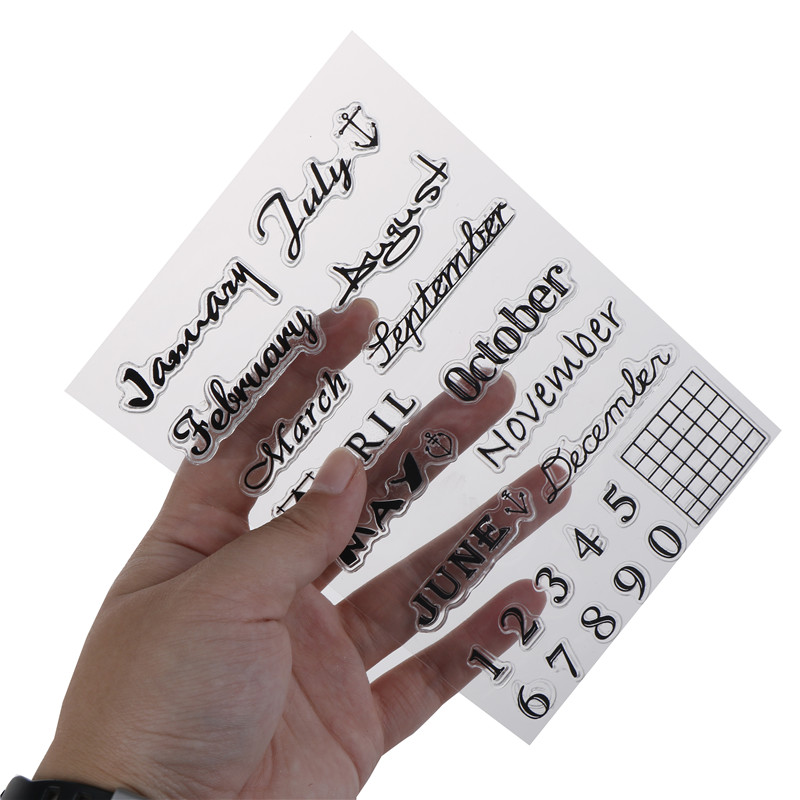 January
February
March
APRIL
MAY
JUNE
July
August
September
October
November
December
1 2 3 4 5
6 7 8 9 0